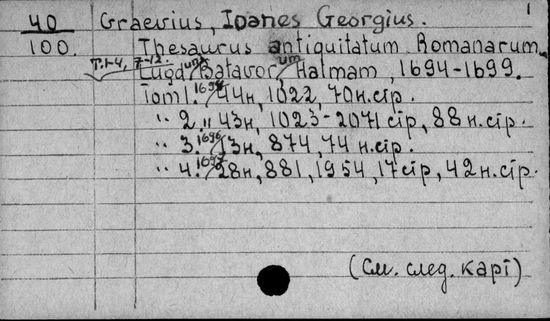 1
40 Graevius, Ioanes Georgius.
100. Thesaurus antiquitatum Romanarum
T.1-4, 7-12. Lugd. Batavor, Halmam, 1694-1699.
Tom 1. 1694 44н, 1022, 70 н.сір.
" 2. " 43н, 1023-2071 сір, 88 н.сір.
" 3. 1696 13н, 874, 74 н.сір.
" 4. 1697 28н, 881, 1954, 17 сір, 42 н.сір.
(См. след. карі)